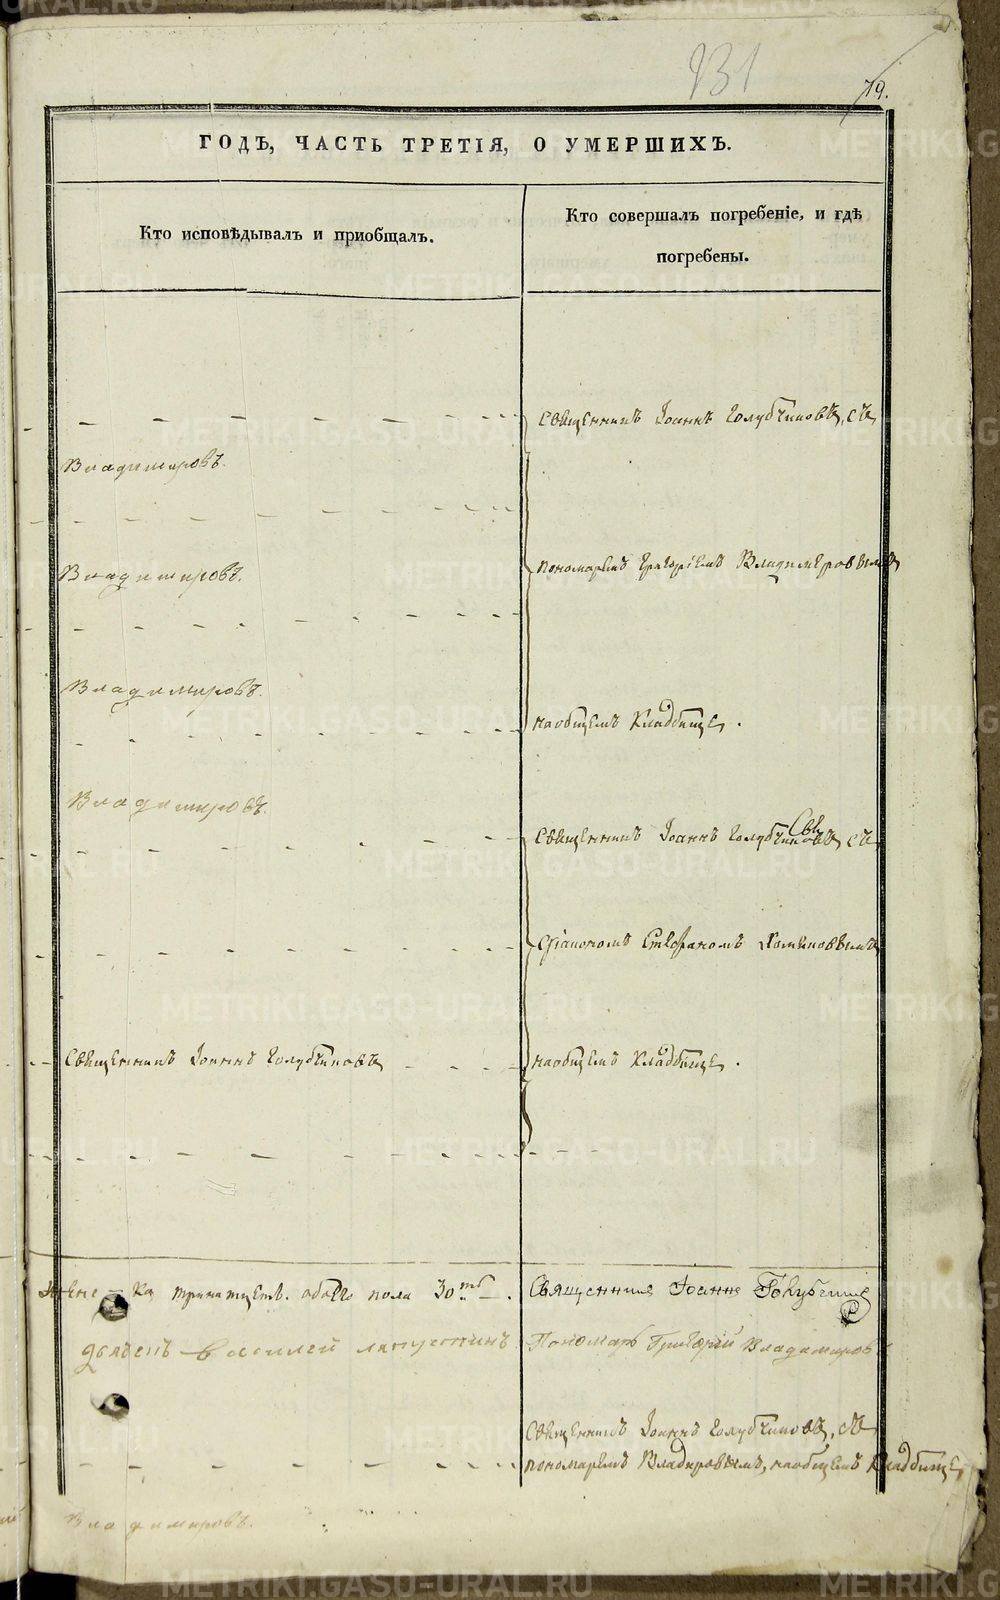 231
79.
ГОДЪ, ЧАСТЬ ТРЕТІЯ, О УМЕРШИХЪ.
Кто исповѣдывалъ и приобщалъ.
Кто совершалъ погребеніе, и гдѣ
погребены.
Священникъ Іоаннъ Голубчиковъ, съ
Владимировъ.
Владимировъ.
пономаремъ Григоріемъ Владимеровымъ
Владимировъ.
на общемъ Кладбище.
Владимировъ.
Священникъ Іоаннъ Голубчиковъ, съ
Стефаномъ
Священникъ Іоаннъ Голубчиковъ
на общемъ Кладбище.
обоего пола 30.
Священникъ Іоаннъ Голубчик
Василей
Пономарь Григорий Владимиров
Священникъ Іоаннъ Голубчиковъ, съ
пономаремъ Владировымъ, на общемъ Кладбище
Владимировъ.
METRIKI.GASO-URAL.RU